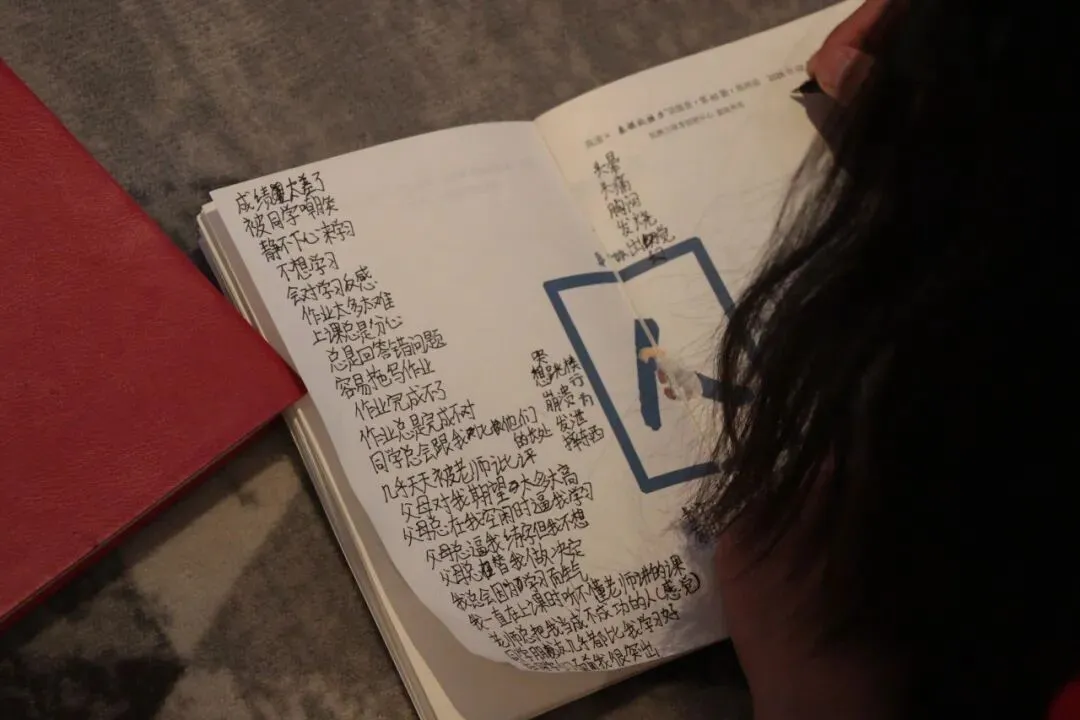 成绩太差了
被同学嘲笑
静不下心来学习
不想学习
会对学习反感
作业太多太难
上课总是分心
总是回答错问题
容易拖写作业
作业完成不了
作业总是完成不对
同学总会跟我对比他们
的长处
几乎天天被老师批评
父母对我期望太多太高
父母总在我空闲时逼我学习
父母总逼我练字但我不想
父母总替我做决定
我总会因为学习而生气
我一直在上课时听不懂老师讲的课
老师总把我当成不成功的人(感觉)
几乎都比我学习好
哭
想跳楼
崩溃
行为
发泄
摔东西
头晕
头痛
胸闷
发烧
人